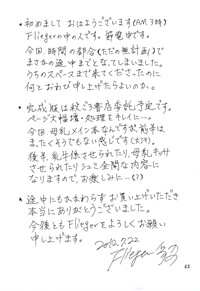 ・初めまして おはようございます(AM.3時)
Fliegerの中の人です。筋竜です。
今回、時間の都合(ただの無計画)で
まさかの途中までとなってしまいました。
うちのスペースまで来てくださったのに
何とおわび申し上げたらよいのか。
・完成版は絞って書店委託予定です。
ページ大幅増・処理をキレイに…。
今回、母乳メイン本なんですが、前半は
まったくそうでもない感じです(大汗)。
後半、乳牛体させられたり、母乳
させられたりシュミ全開な内容に
なりますので、お楽しみに…(?)
・途中にもかかわらずお買い上げいただき
本当にありがとうございました。
今後ともFliegerをよろしくお願い
申し上げます。
2012.7.22
Flieger
62